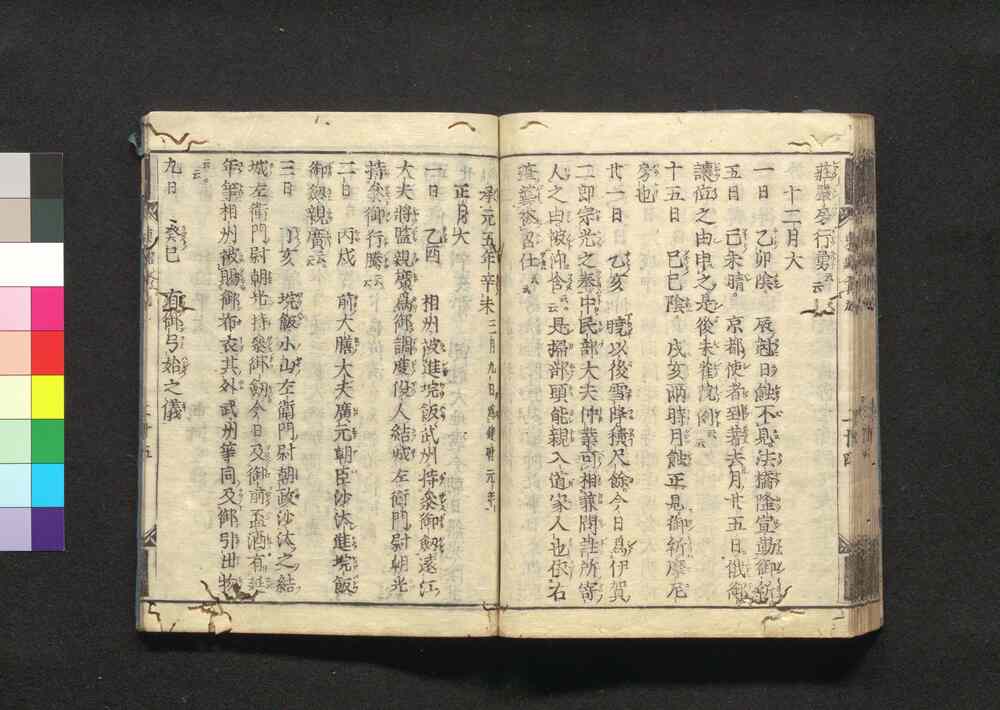 莊嚴房行勇云云
十二月大
一日　乙卯陰　辰尅日蝕不見法橋隆宣勤御祈
五日　己未晴。京都使者到著去月廿五日俄御
讓位之由申之是後朱雀院例云云
十五日　己巳陰　戌亥兩時月蝕正見御祈摩尼
房也
廿一日　乙亥　曉以後雪降積尺餘今日爲伊賀
二郎宗光之奉中民部大夫仲業可相兼問注所寄
人之由被仰含云云是掃部頭能親入道家人也依右
筆被召仕云云
承元五年辛未三月九日爲建曆元年
正月大
一日　乙酉　相州被進垸飯武州持參御劔遠江
大夫將監親廣爲御調度役人結城左衞門尉朝光
持參御行騰云云
二日　丙戌　前大膳大夫廣元朝臣沙汰進垸飯
御劔親廣云云
三日　丁亥　垸飯小山左衞門尉朝政沙汰之結
城左衞門尉朝光持參御劔今日及御前盃酒有延
年等相州被賜御布衣其外武州等同及御引出物
云云。
九日　癸巳　有御弓始之儀